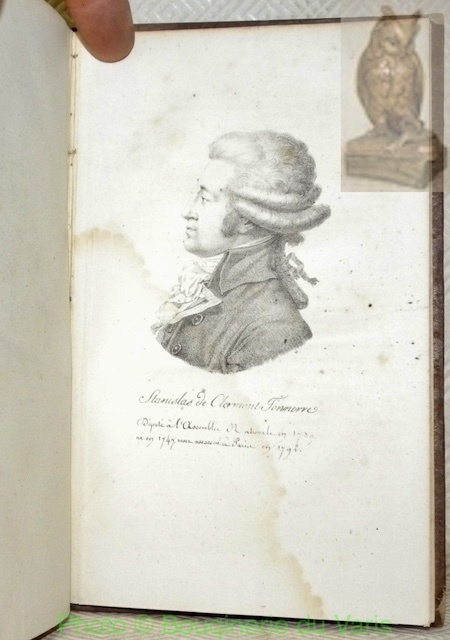 Stanislas de Clermont Tonnerre
Député à l'Assemblée Nationale en
né en 1747 mort assassiné à Paris en 1792.
Photo © Bouquinerie du Varis